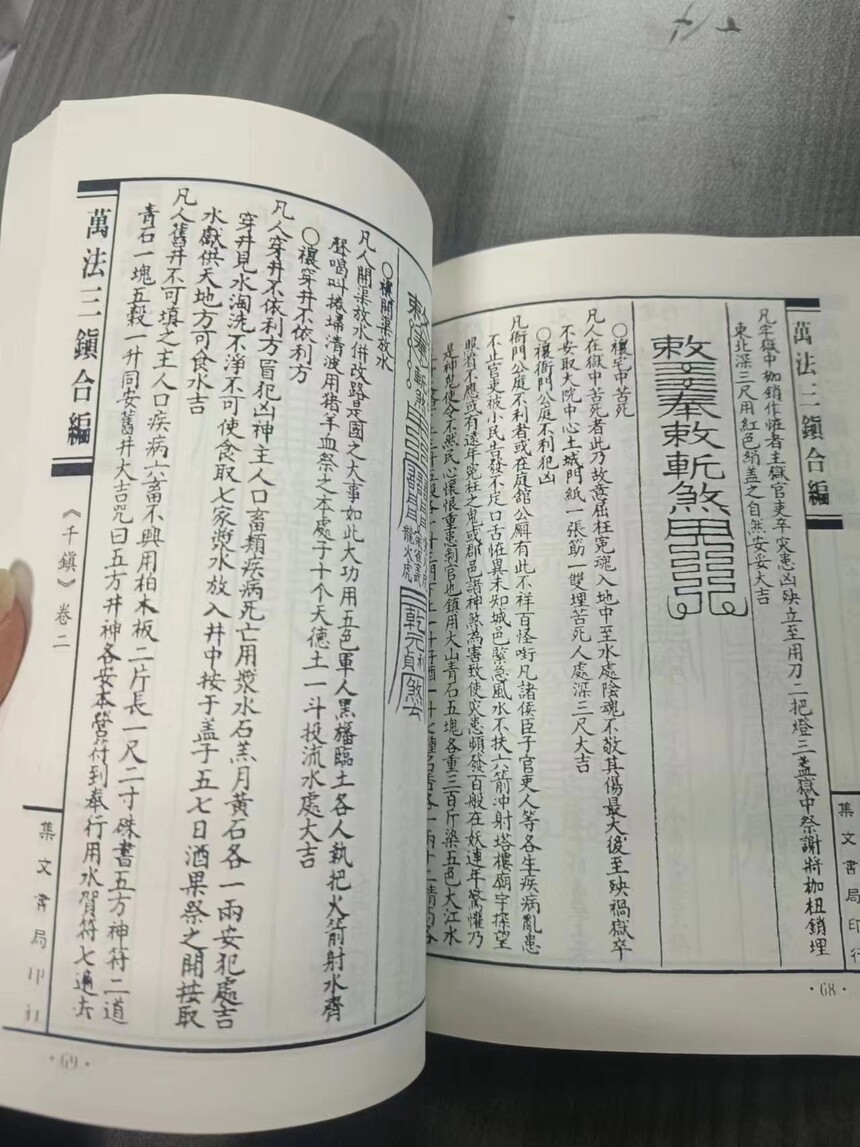 萬法三鎮合編
集文書局印行
·68·
凡牢獄中枷鎖作怪者主獄官吏卒災患凶殃立至用刀二把燈三盞獄中祭謝將枷杻鎖埋
東北深三尺用紅色絹蓋之自然安妥大吉
敕奉敕斬煞
〇禳宅中苦死
凡人在獄中苦死者此乃故意屈枉冤魂入地中至水處陰魂不敬其傷最大後至殃禍獄卒
不安取大院中心土城門紙一張筯一雙埋苦死人處深三尺大吉
〇禳衙門公庭不利犯凶
凡衙門公庭不利者或在庭舘公厠有此不祥百怪呀凡諸侯臣子官吏人等各生疾病亂患
不止官吏被小民告發不定口舌怪異未知城邑緊急風水不扶六箭冲射塔樓廟宇探望
眼省不應或有遠年冤枉之鬼或郡邑諸神煞為害致使災患頻發百般在妖連年驚懼乃
是神鬼使令不然民心懷恨重患剝官也鎮用大山青石五塊各重三百斤染五色大江水
敕奉斬煞
龍火虎
乾元 貞 煞
〇禳開渠放水
凡人開渠放水併改路是國之大事如此大功用五色軍人黑旛臨土各人執把火箭射水齊
聲喝叫捲埽清波用猪羊血祭之本處子十个天德土一斗投流水處大吉
〇禳穿井不依利方
凡人穿井不依利方冒犯凶神主人口畜類疾病死亡用漿水石羔月黃石各一兩安犯處吉
穿井見水淘洗不淨不可使食取七家漿水放入井中按于盖子五七日酒果祭之開按取
水獻供天地方可食水吉
凡人舊井不可填之主人口疾病六畜不興用柏木板二片長一尺二寸硃書五方神符二道
青石一塊五穀一升同安舊井大吉咒曰五方井神各安本營符到奉行用水賀符七遍去
萬法三鎮合編
《千鎮》卷二
集文書局印
·69·